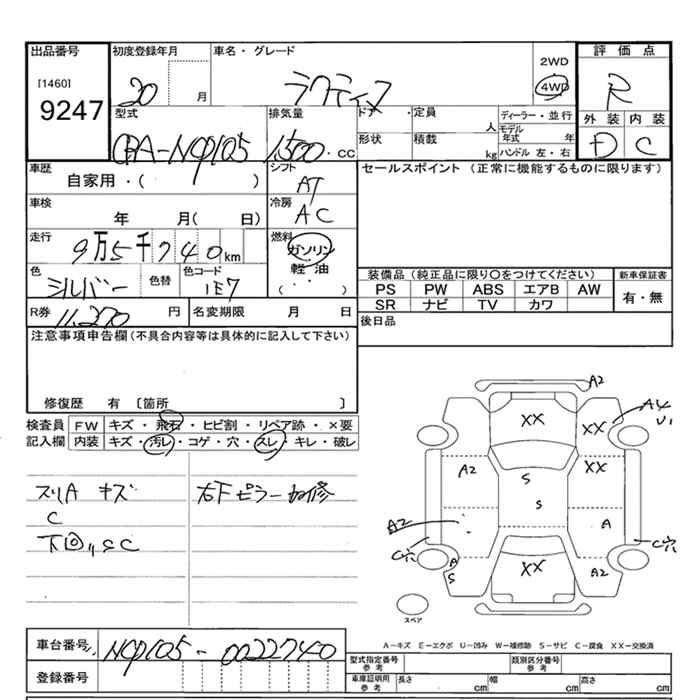 出品番号
[1460]
9247
初度登録年月
20 月
車名・グレード
ラクティス
2WD
4WD
評価点
R
外装 内装
D C
型式
CBA-NCP105
排気量
1,500 .CC
ドア ・定員
人
形状 積載
kg
ディーラー・並行
モデル年式 年
ハンドル 左・右
車歴
自家用・( )
シフト
AT
セールスポイント(正常に機能するものに限ります)
車検
年 月( 日)
冷房
AC
走行
9万5千740km
燃料
ガソリン
軽油
(・・)
色
シルバー
色替
色コード
1E7
装備品(純正品に限り○をつけてください)
新車保証書
PS PW ABS エアB AW
SR ナビ TV カワ
有・無
R券 11,270 円
名変期限 月 日
後日品
注意事項申告欄(不具合内容等は具体的に記入して下さい)
修復歴 有 [箇所 ]
検査員記入欄
FW キズ・飛石・ヒビ割・リペア跡・×要
内装 キズ・汚レ・コゲ・穴・スレ・キレ・破レ
スリA キズ
C
下回リSC
右Fピラー 加修
A2
XX
XX
A4
U1
A2
S
XX
S
A2
A
C穴
C穴
A
S
XX
A2
スペア
A-キズ E-エクボ U-凹み W-補修跡 S-サビ C-腐食 XX-交換済
車台番号 NCP105-0022740
登録番号
型式指定番号 参考
類別区分番号 参考
車庫証明用 参考
長さ cm 幅 cm 高さ cm